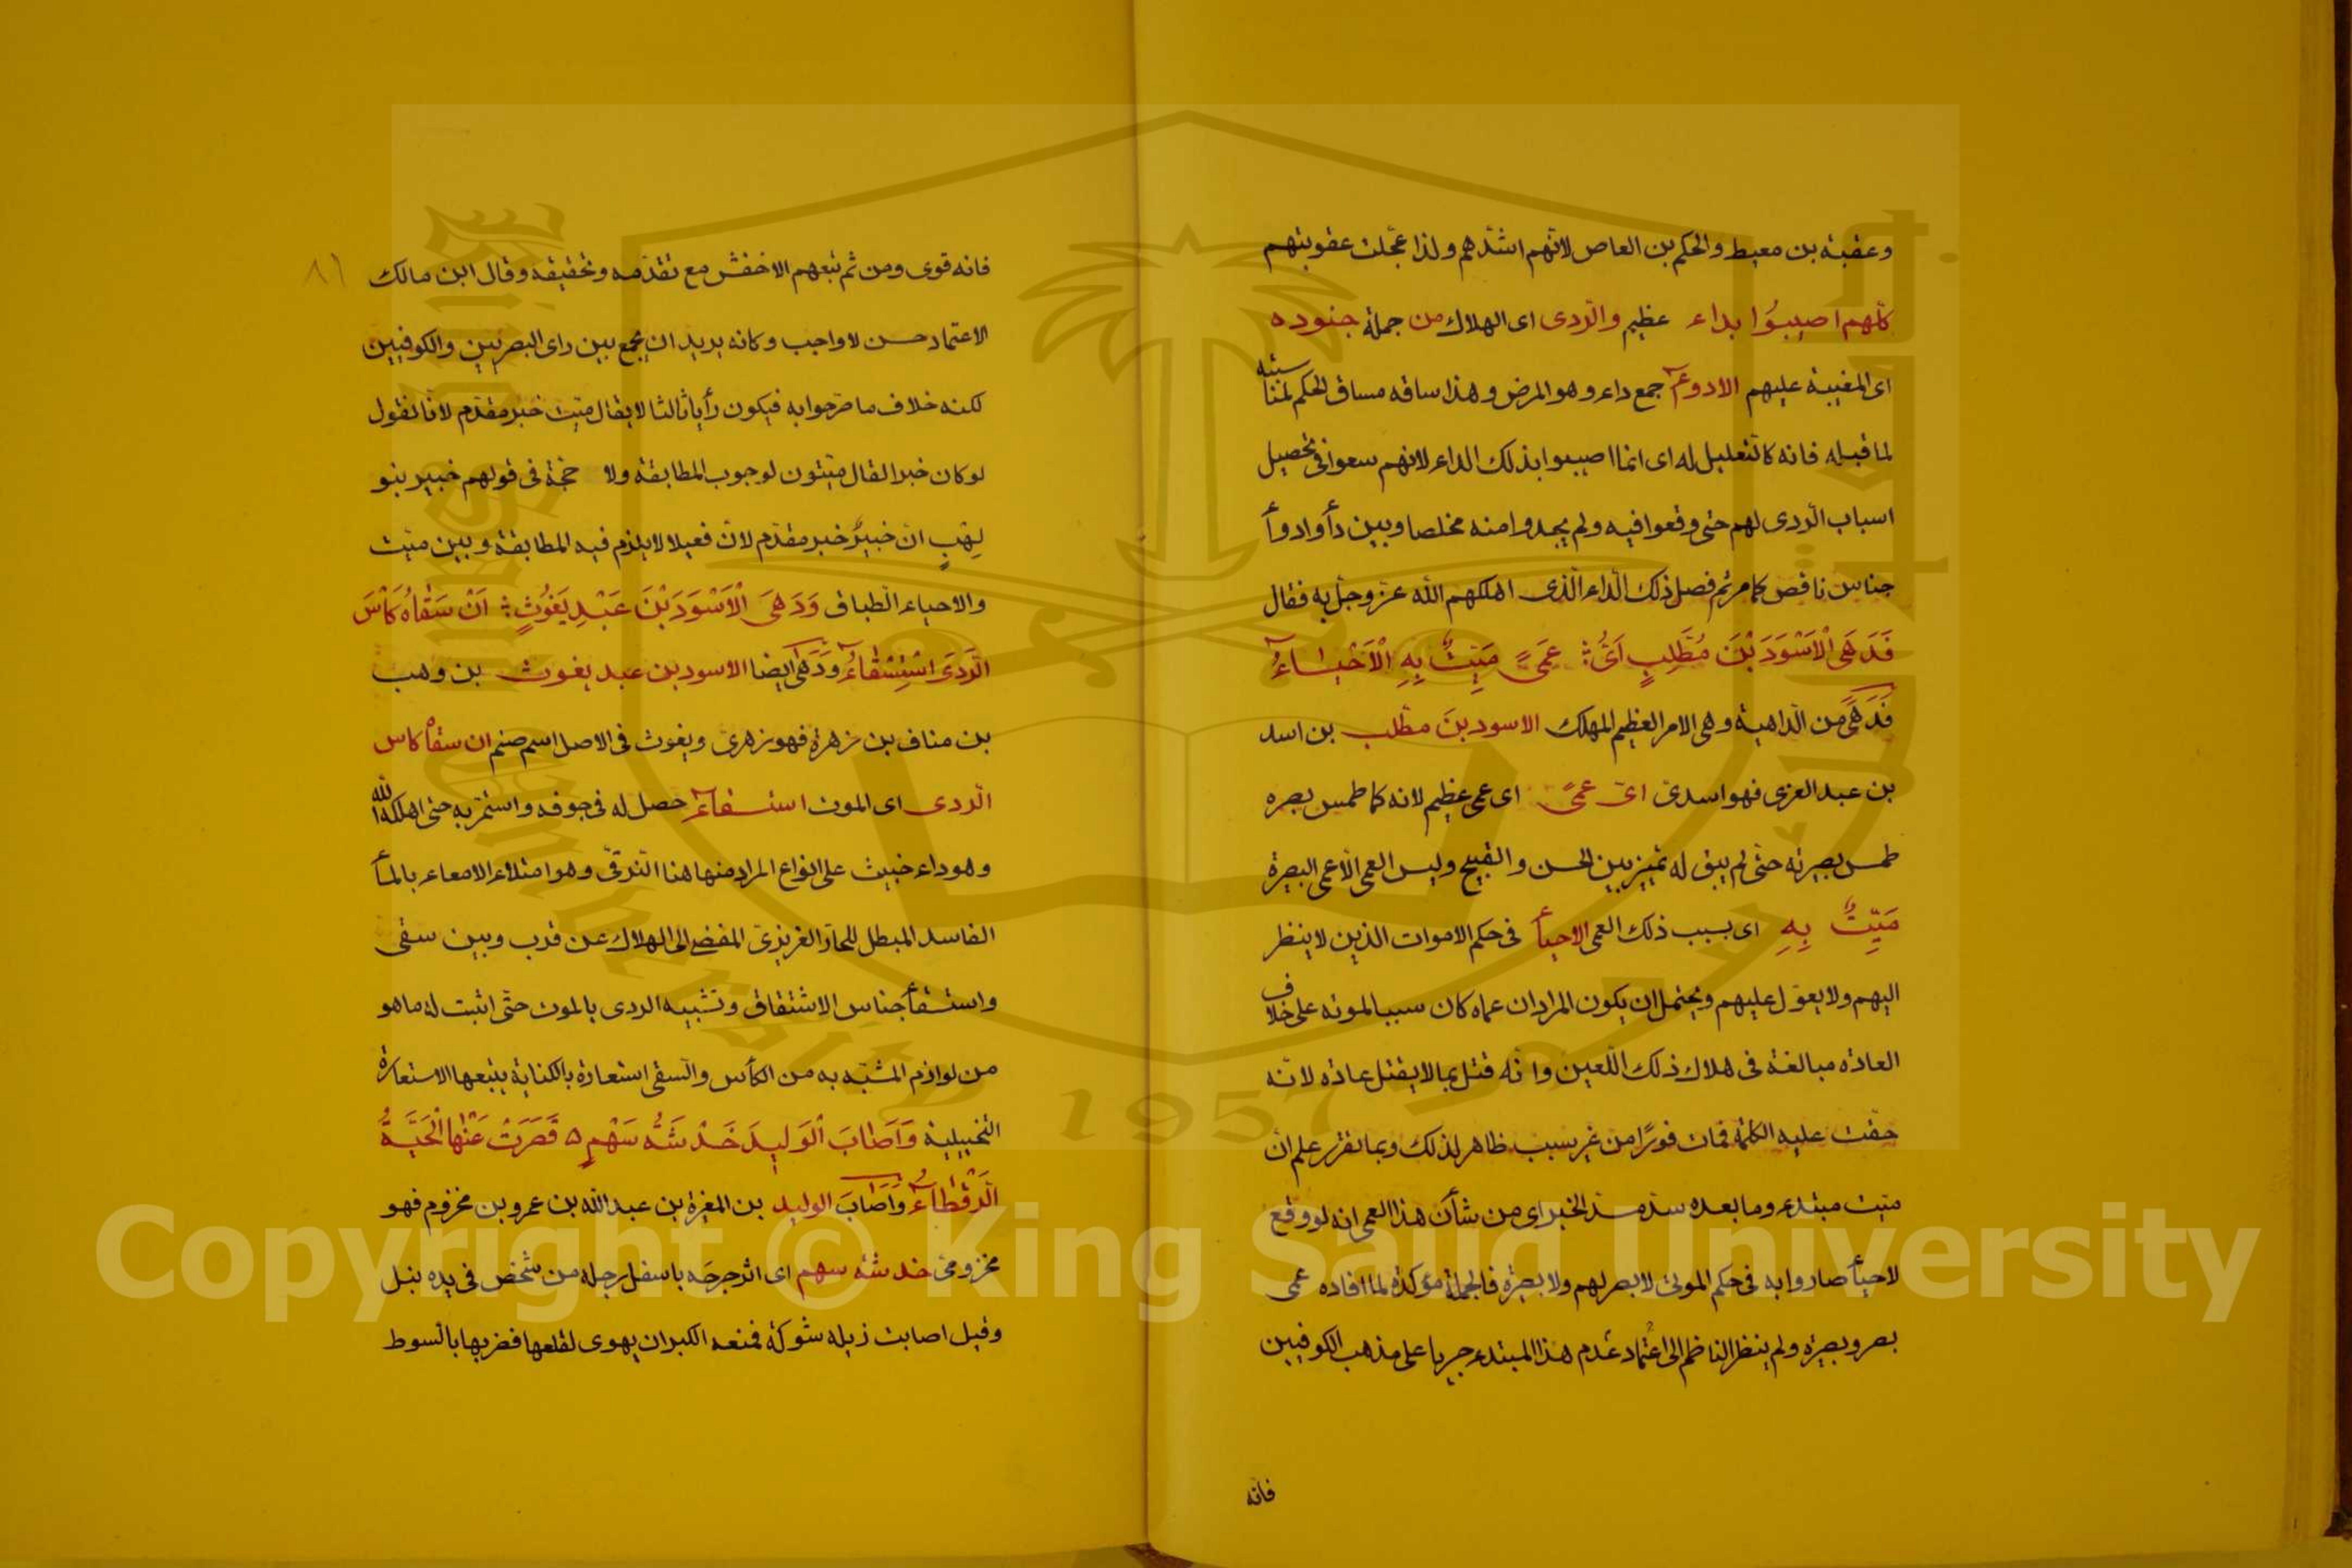 وعقبة بن معيط والحكم بن العاص لانهم اشدّهم ولذا عجّلت عقوبتهم
كلّهم اصيبُوا بداء عظيم والرّدى اى الهلاك من جملة جنوده
اى المغيبة عليهم الادوءآء جمع داء وهو المرض وهذا ساقه مساق الحكم لمناسبته
لما قبله فانه كالتّعليل له اى انما اصيبوا بذلك الداء لانهم سعوا فى تحصيل
اسباب الرّدى لهم حتى وقعوا فيه ولم يجدوا منه مخلصا وبين دأ وادوأ
جناس ناقص كما مر ثم فصل ذلك الدّاء الّذى اهلكهم الله عزّ وجلّ به فقال
فَدَهَى الْاَسْوَدَ بْنَ مُطَّلِبٍ اَىُّ ؞ عَمًى مَيِّتٌ بِهِ الْاَحْيَاءُ
فَدَهَى من الدّاهية وهى الامر العظيم المهلك الاسود بنَ مطّلب بن اسد
بن عبد العزى فهو اسدى اىّ عمًى اى عمى عظيم لانه كما طمس بصره
طمس بصيرته حتّى لم يبق له تمييز بين الحسن والقبيح وليس العمى الّا عمى البصيرة
مَيِّتٌ بِهِ اى بسبب ذلك العمى الاحيأ فى حكم الاموات الذين لا ينظر
اليهم ولا يعوّل عليهم ويحتمل ان يكون المراد ان عماه كان سببا لموته على خلاف
العادة مبالغة فى هلاك ذلك اللّعين وانّه قتل بما لا يقتل عادة لانّه
حقّت عليه الكلمة فمات فورًا من غير سبب ظاهر لذلك وبما تقرّر علم انّ
ميّت مبتدء وما بعده سدّ مسدّ الخبر اى من شأن هذا العمى انه لو وقع
لاحيأ صاروا به فى حكم الموتى لا بصر لهم ولا بصيرة فالجملة مؤكدة لما افاده عمى
بصر وبصيرة ولم ينظر الناظم الى اعتماد عدم هذا المبتدء جريا على مذهب الكوفيين
فانّه
فانه قوى ومن ثم تبعهم الاخفش مع تقدّمه وتحقيقه وقال ابن مالك
الاعتماد حسن لا واجب وكانه يريد ان يجمع بين راى البصريّين والكوفيين
لكنه خلاف ما صرّحوا به فيكون رأيا ثالثا لا يقال ميّت خبر مقدّم لانّا نقول
لو كان خبرا لقال ميّتون لوجوب المطابقة ولا حجّة فى قولهم خبير بنو
لِهْبٍ انّ خبيرٌ خبر مقدّم لانّ فعيلا لا يلزم فيه المطابقة وبين ميّت
والاحياء الطّباق وَدَهَى الْاَسْوَدَ بْنَ عَبْدِ يَغُوْثٍ ؞ اَنْ سَقَاهُ كَأْسَ
الرَّدَى اسْتِسْقَاءُ وَدَهَى ايضا الاسود بن عبد يغوث بن وهب
بن مناف بن زهرة فهو زهرىّ ويغوث فى الاصل اسم صنم ان سقاْ كاس
الرّدى اى الموت استسقآء حصل له فى جوفه واستمرّ به حتى اهلكه الله
وهو داء خبيث على انواع المراد منها هنا الزقى وهو امتلاء الامعاء بالمأ
الفاسد المبطل للحارّ الغريزىّ المفضى الى الهلاك عن قرب وبين سقى
واستسقأ جناس الاشتقاق وتشبيه الردى بالموت حتّى اثبت له ما هو
من لوازم المشبّه به من الكأس والسّقى استعارة بالكناية يتبعها الاستعارة
التخييلية وَاَصَابَ الْوَلِيدَ خَدْشَةُ سَهْمٍ ه قَصَرَتْ عَنْهَا الْحَيَّةُ
الرَّقْطَاءُ وَاَصَابَ الوليد بن المغيرة بن عبد الله بن عمرو بن مخزوم فهو
مخزومىّ خدشة سهم اى اثر جرحه باسفل رجله من شخص فى يده نبل
وقيل اصابت ذيله شوكة فمنعه الكبر ان يهوى لقلعها فضربها بالسوط
King Saud University
1957
Copyright © King Saud University